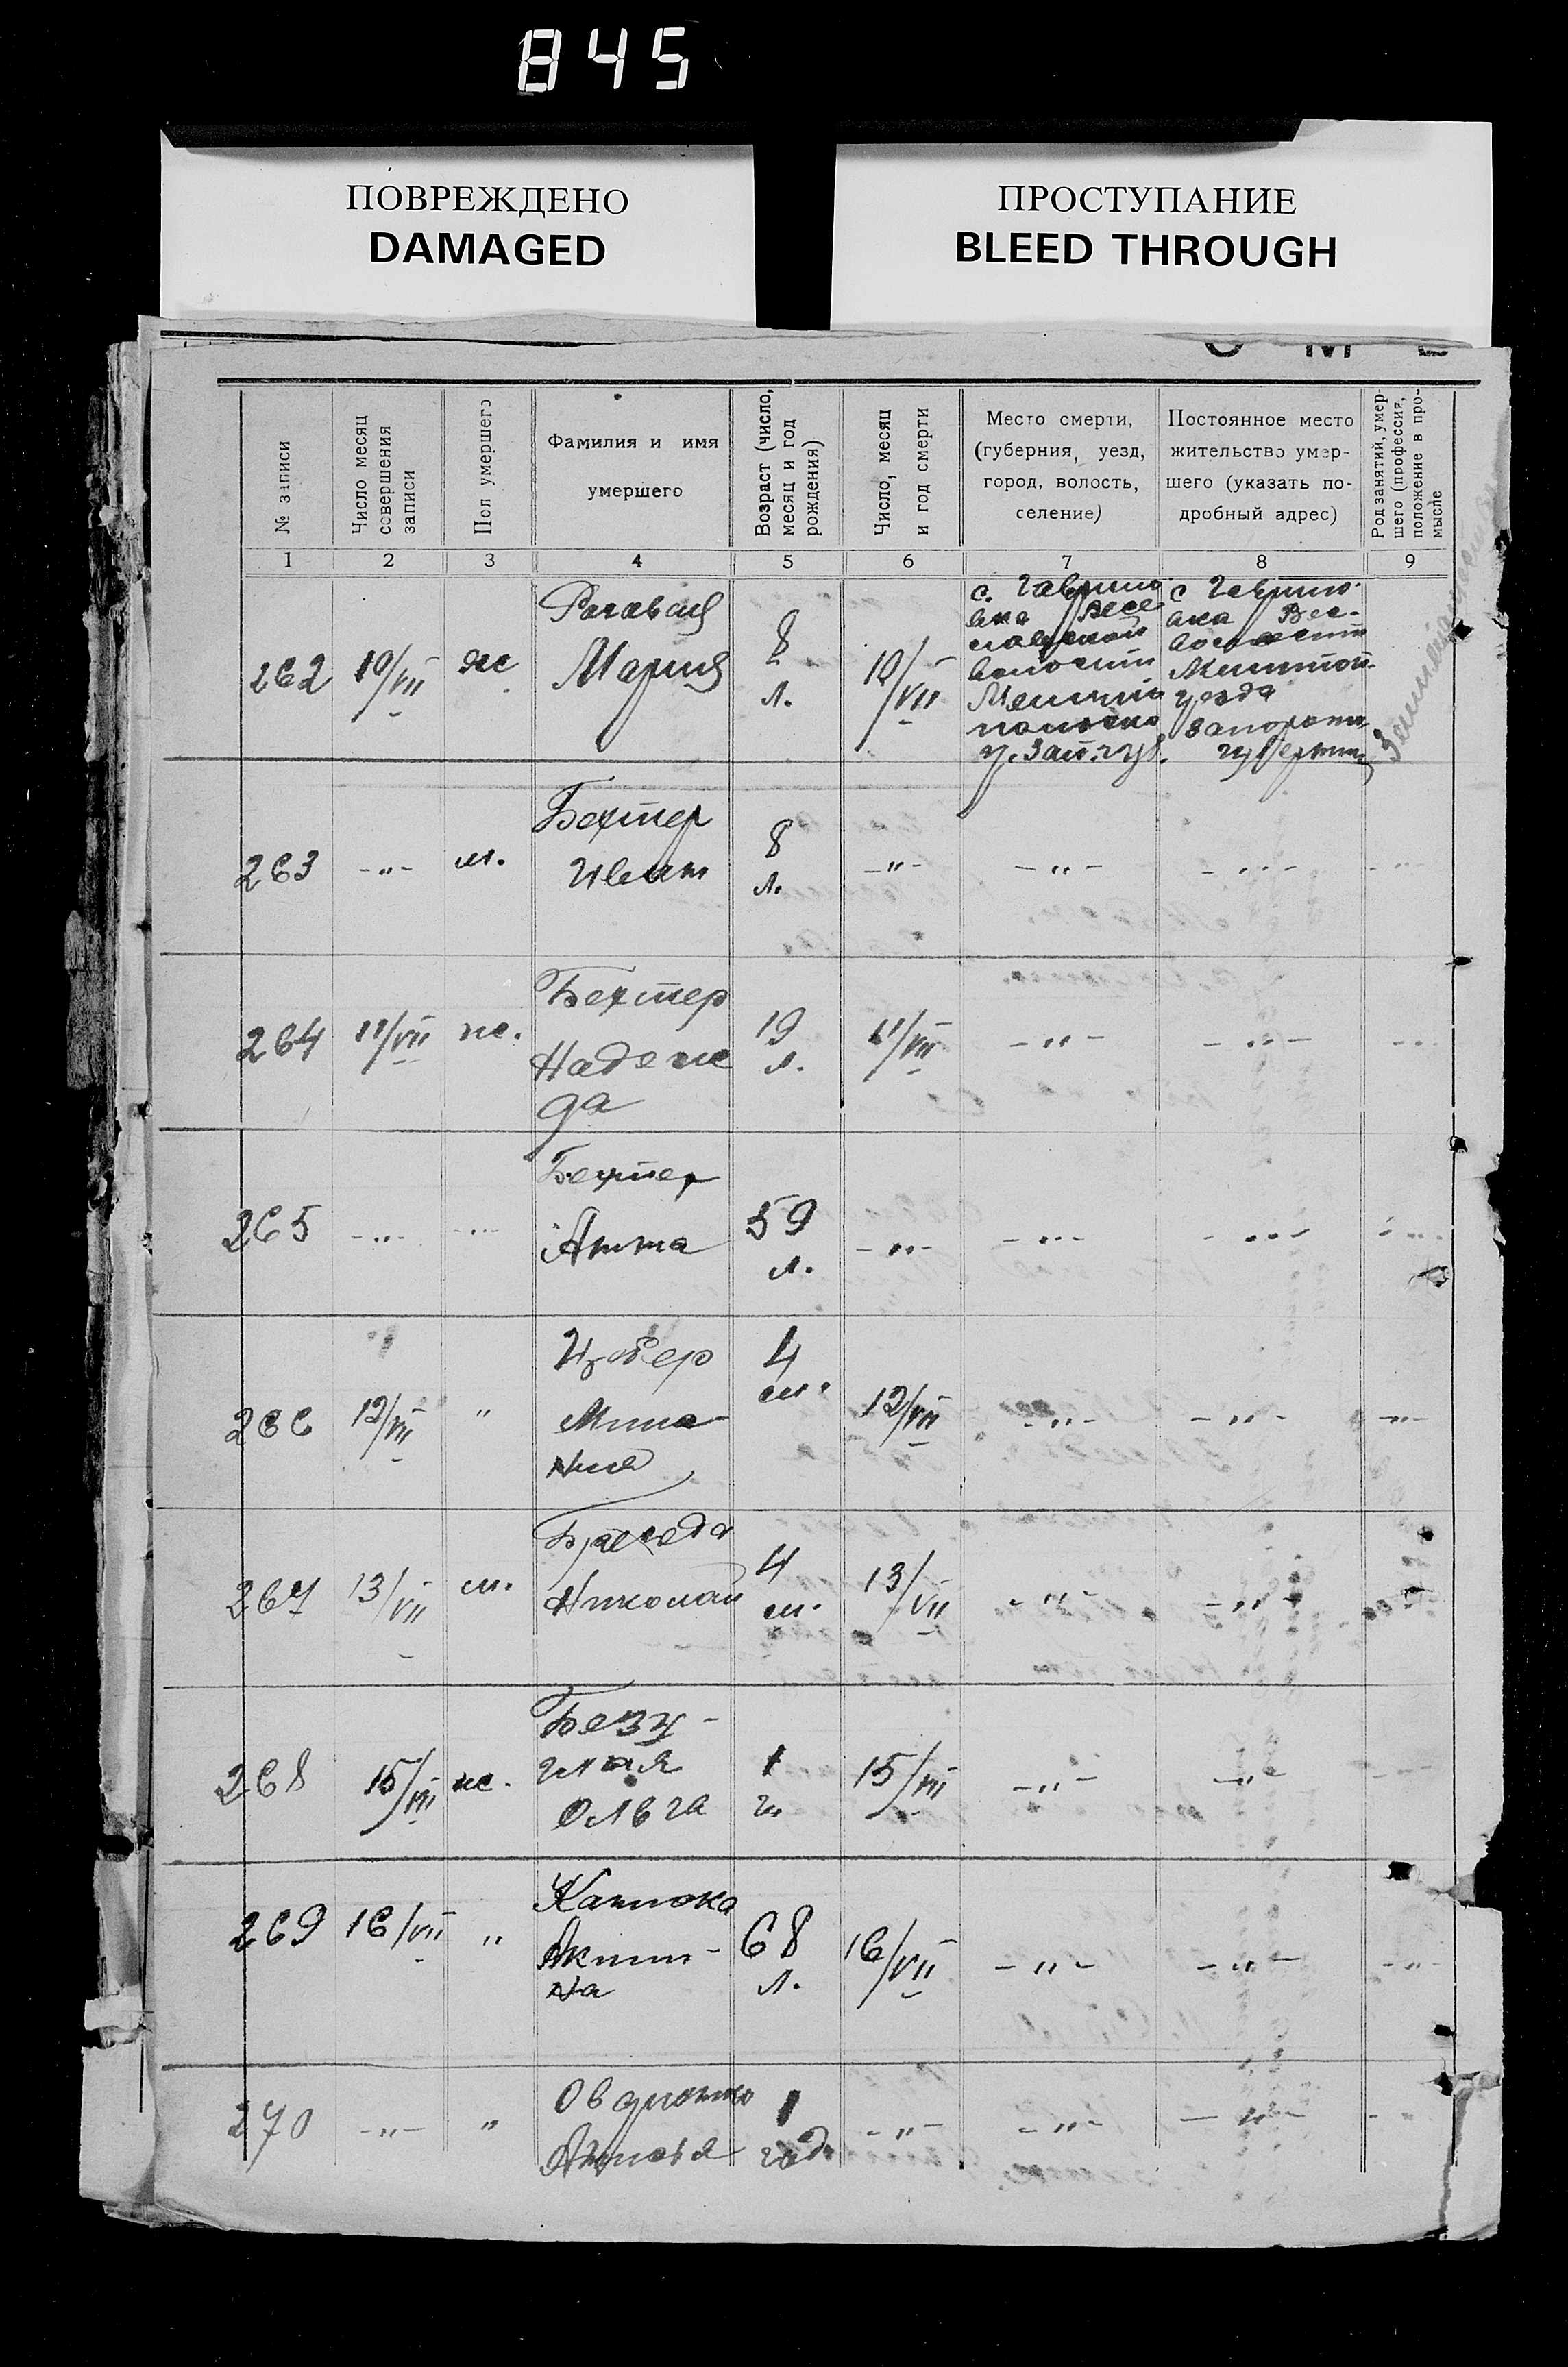 845
ПОВРЕЖДЕНО
DAMAGED
ПРОСТУПАНИЕ
BLEED THROUGH
№ записи
Число месяц
совершения
записи
Пол умершего
Фамилия и имя
умершего
Возраст (число,
месяц и год
рождения)
Число, месяц
и год смерти
Место смерти,
(губерния, уезд,
город, волость,
селение)
Постоянное место
жительство умер-
шего (указать по-
дробный адрес)
Род занятий, умер-
шего (профессия,
положение в про-
мысле
1 2 3 4 5 6 7 8 9
262 10/VII ж
Мария
л.
10/VII
с. Гаврило
вка Весе
волости
у. Зап. губ.
с Гаврило-
вка Вес-
уезда
губернии
263 -„- м.
Бехтер
Иван
8
л.
-„- -„- -„- -„-
264 11/VII ж.
Бехтер
Надеж
да
19
л.
11/VII -„- -„- -„-
265 -„- -„-
Бехтер
Анна
59
л.
-„- -„- -„- -„-
266 12/VII „
4
м.
12/VII -„- -„- -„-
267 13/VII м.
Николай
4
м.
13/VII -„- -„-
268 15/VII ж.
Безу-
глая
Ольга
1
г.
15/VII -„- -„-
269 16/VII „
Акили-
на
68
л.
16/VII -„- -„- -„-
270 -„- „
1
год
-„- -„- -„-